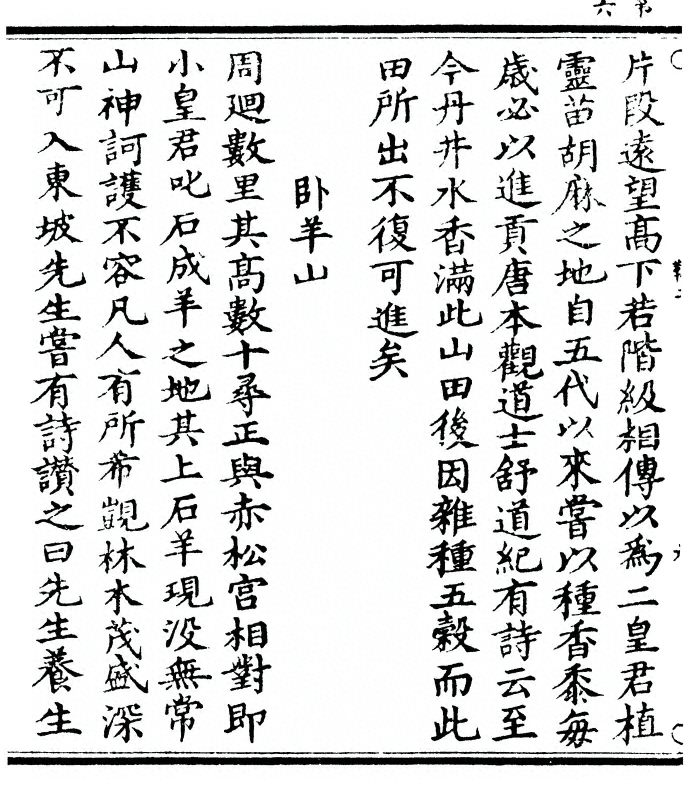 片段遠望高下若階級相傳以爲二皇君植
靈苗胡麻之地自五代以來嘗以種香黍每
歲必以進貢唐本觀道士舒道紀有詩云至
今丹井水香滿此山田後因雜種五穀而此
田所出不復可進矣
卧羊山
周廻數里其高數十尋正與赤松宫相對即
小皇君叱石成羊之地其上石羊現没無常
山神訶護不容凡人有所希覬林木茂盛深
不可入東坡先生嘗有詩讃之曰先生養生